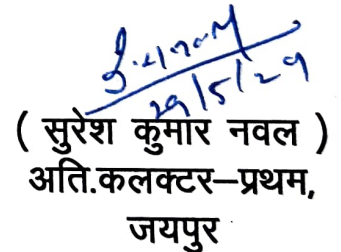 29/5/29
( सुरेश कुमार नवल )
अति.कलक्टर–प्रथम,
जयपुर